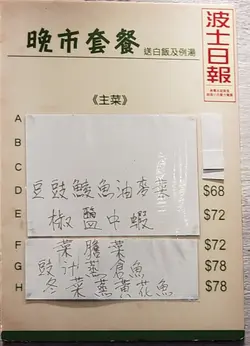 波士日報
晚市套餐 送白飯及例湯
《主菜》
A
B
C
D 豆豉鯪魚油麥菜 $68
E 椒鹽中蝦 $72
F 菜膽菜 $72
G 豉汁蒸倉魚 $78
H 冬菜蒸黃花魚 $78